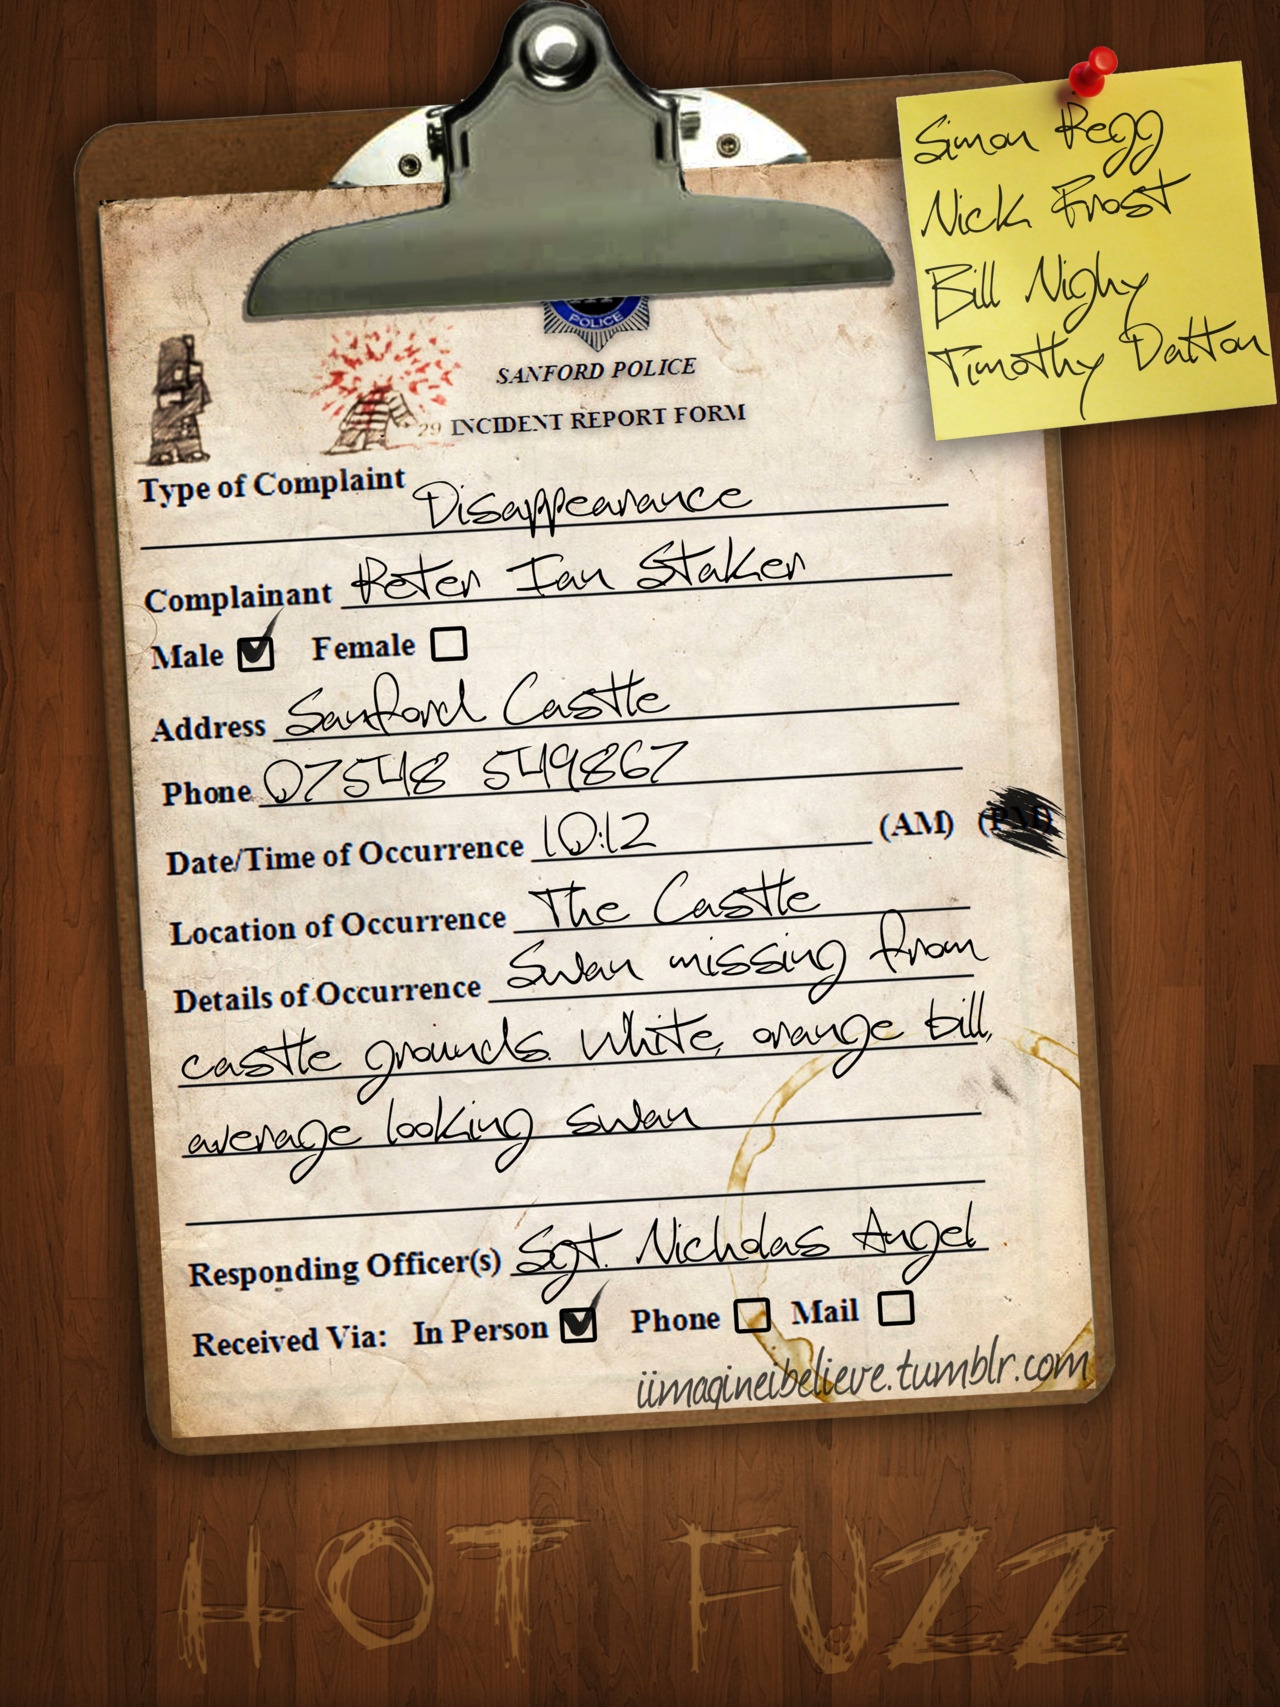 Simon Pegg
Nick Frost
Bill Nighy
Timothy Dalton
POLICE
SANFORD POLICE
29 INCIDENT REPORT FORM
Type of Complaint Disappearance
Complainant Peter Ian Staker
Male Female
Address Sanford Castle
Phone 07548 549867
Date/Time of Occurrence 10:12 (AM) (PM)
Location of Occurrence The Castle
Details of Occurrence Swan missing from
castle grounds. White, orange bill,
average looking swan
Responding Officer(s) Sgt. Nicholas Angel
Received Via: In Person Phone Mail
iimagineibelieve.tumblr.com
HOT FUZZ